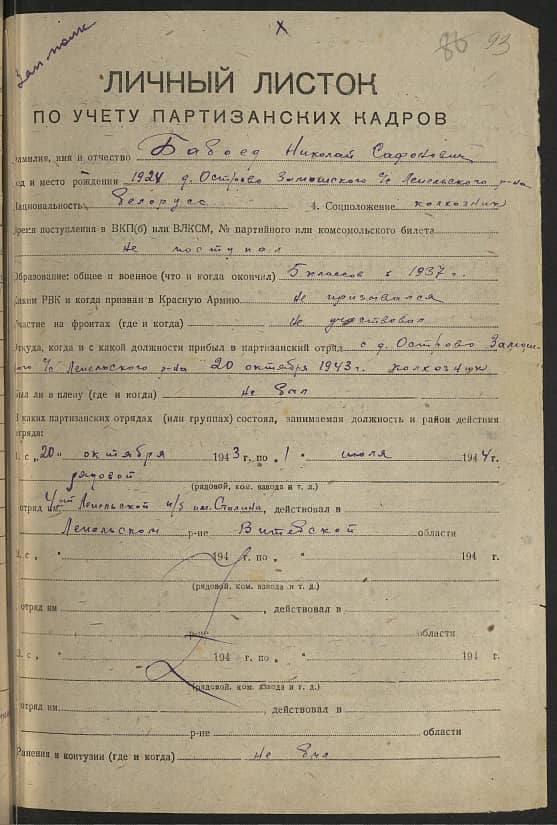 Зап. полк
х
86 93
ЛИЧНЫЙ ЛИСТОК
ПО УЧЕТУ ПАРТИЗАНСКИХ КАДРОВ
Фамилия, имя и отчество Бабоед Николай Сафонович
год и место рождения 1924 д. Острово Замошского с/с Лепельского р-на
Национальность Белорусс 4. Соцположение колхозник
Время поступления в ВКП(б) или ВЛКСМ, № партийного или комсомольского билета
Не поступал
Образование: общее и военное (что и когда окончил) 5 классов в 1937 г.
Каким РВК и когда призван в Красную Армию Не призвался
Участие на фронтах (где и когда) Не участвовал
Откуда, когда и с какой должности прибыл в партизанский отряд с д. Острово Замош-
ского с/с Лепельского р-на 20 октября 1943 г. колхозник
Был ли в плену (где и когда) Не был
В каких партизанских отрядах (или группах) состоял, занимаемая должность и район действия
отряда:
1. с „20" октября 1943 г. по „1" июля 1944 г.
рядовой
(рядовой, ком. взвода и т. д.)
отряд им. Лепельской п/б им. Сталина, действовал в
Лепельском р-не Витебской области
2. с „ " 194 г. по „ " 194 г.
(рядовой, ком. взвода и т. д.)
отряд им , действовал в
р-не области
3. с „ " 194 г. по „ " 194 г.
(рядовой, ком. взвода и т. д.)
отряд им. , действовал в
р-не области
Ранения и контузии (где и когда) Не был